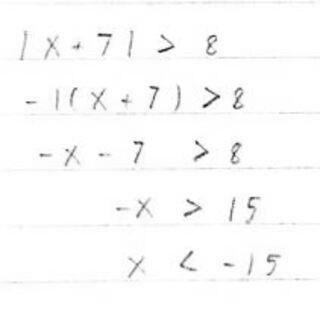 |x + 7| > 8
-1(x + 7) > 8
-x - 7 > 8
-x > 15
x < -15